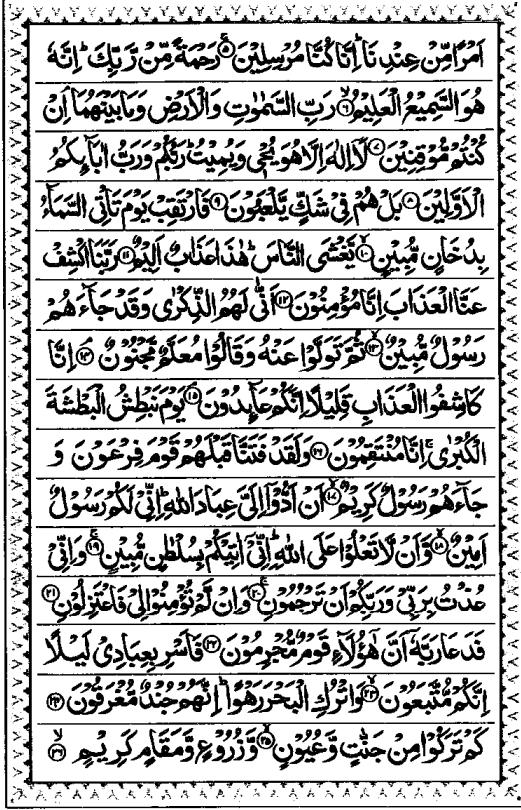 اَمْرًا مِّنْ عِنْدِنَا ؕ اِنَّا كُنَّا مُرْسِلِيْنَ ۚ﴿۵﴾ رَحْمَةً مِّنْ رَّبِّكَ ؕ اِنَّهٗ
هُوَ السَّمِيْعُ الْعَلِيْمُ ۙ﴿۶﴾ رَبِّ السَّمٰوٰتِ وَالْاَرْضِ وَمَا بَيْنَهُمَا ۘ اِنْ
كُنْتُمْ مُّوْقِنِيْنَ ﴿۷﴾ لَاۤ اِلٰهَ اِلَّا هُوَ يُحْيٖ وَيُمِيْتُ ؕ رَبُّكُمْ وَرَبُّ اٰبَآئِكُمُ
الْاَوَّلِيْنَ ﴿۸﴾ بَلْ هُمْ فِيْ شَكٍّ يَّلْعَبُوْنَ ﴿۹﴾ فَارْتَقِبْ يَوْمَ تَاْتِى السَّمَآءُ
بِدُخَانٍ مُّبِيْنٍ ۙ﴿۱۰﴾ يَّغْشَى النَّاسَ ؕ هٰذَا عَذَابٌ اَلِيْمٌ ﴿۱۱﴾ رَبَّنَا اكْشِفْ
عَنَّا الْعَذَابَ اِنَّا مُؤْمِنُوْنَ ﴿۱۲﴾ اَنّٰى لَهُمُ الذِّكْرٰى وَقَدْ جَآءَهُمْ
رَسُوْلٌ مُّبِيْنٌ ۙ﴿۱۳﴾ ثُمَّ تَوَلَّوْا عَنْهُ وَقَالُوْا مُعَلَّمٌ مَّجْنُوْنٌ ۘ﴿۱۴﴾ اِنَّا
كَاشِفُوا الْعَذَابِ قَلِيْلًا اِنَّكُمْ عَآئِدُوْنَ ۘ﴿۱۵﴾ يَوْمَ نَبْطِشُ الْبَطْشَةَ
الْكُبْرٰى ۚ اِنَّا مُنْتَقِمُوْنَ ﴿۱۶﴾ وَلَقَدْ فَتَنَّا قَبْلَهُمْ قَوْمَ فِرْعَوْنَ وَ
جَآءَهُمْ رَسُوْلٌ كَرِيْمٌ ۙ﴿۱۷﴾ اَنْ اَدُّوْۤا اِلَىَّ عِبَادَ اللّٰهِ ؕ اِنِّيْ لَكُمْ رَسُوْلٌ
اَمِيْنٌ ۙ﴿۱۸﴾ وَّاَنْ لَّا تَعْلُوْا عَلَى اللّٰهِ ؕ اِنِّيْۤ اٰتِيْكُمْ بِسُلْطٰنٍ مُّبِيْنٍ ۚ﴿۱۹﴾ وَاِنِّيْ
عُذْتُ بِرَبِّيْ وَرَبِّكُمْ اَنْ تَرْجُمُوْنِ ۚ﴿۲۰﴾ وَاِنْ لَّمْ تُؤْمِنُوْا لِيْ فَاعْتَزِلُوْنِ ﴿۲۱﴾
فَدَعَا رَبَّهٗۤ اَنَّ هٰۤؤُلَآءِ قَوْمٌ مُّجْرِمُوْنَ ﴿۲۲﴾ فَاَسْرِ بِعِبَادِيْ لَيْلًا
اِنَّكُمْ مُّتَّبَعُوْنَ ۙ﴿۲۳﴾ وَاتْرُكِ الْبَحْرَ رَهْوًا ؕ اِنَّهُمْ جُنْدٌ مُّغْرَقُوْنَ ﴿۲۴﴾
كَمْ تَرَكُوْا مِنْ جَنّٰتٍ وَّعُيُوْنٍ ۙ﴿۲۵﴾ وَّزُرُوْعٍ وَّمَقَامٍ كَرِيْمٍ ۙ﴿۲۶﴾